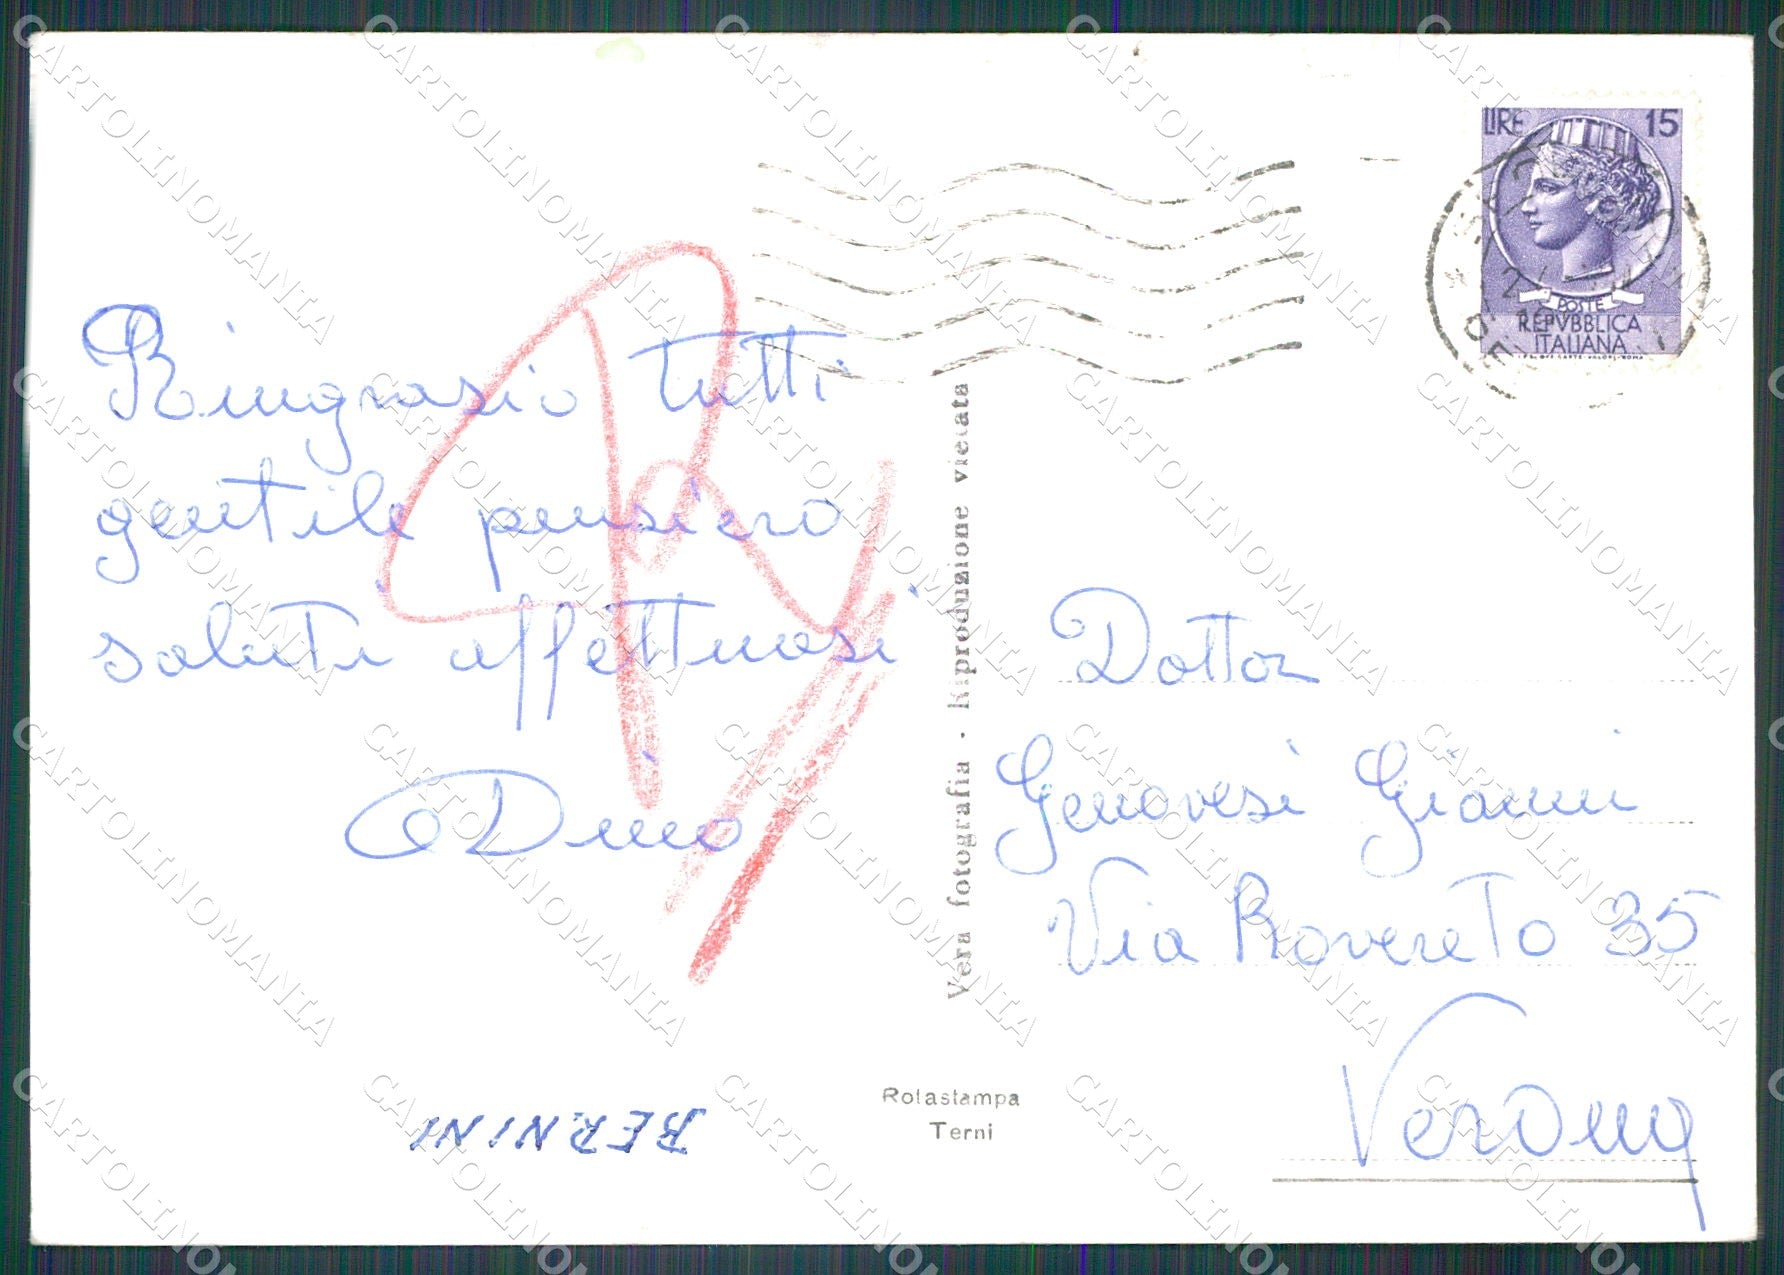 Ringrazio tutti
gentile pensiero
saluti affettuosi
Dino
BERNINI
Vera fotografia · Riproduzione vietata
Rotastampa
Terni
LIRE 15
POSTE
REPVBBLICA
ITALIANA
Dottor
Genovesi Gianni
Via Rovereto 35
Verona
CARTOLINOMANIA